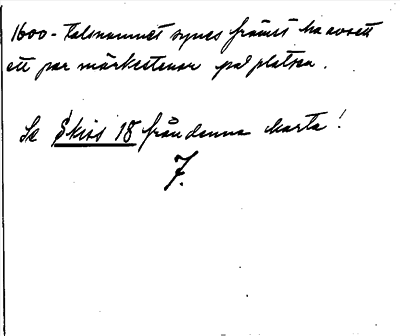 1600-talsnamnet synes främst ha avsett
ett par märkestenar på platsen.
Se Skiss 18 från denna karta!
7.